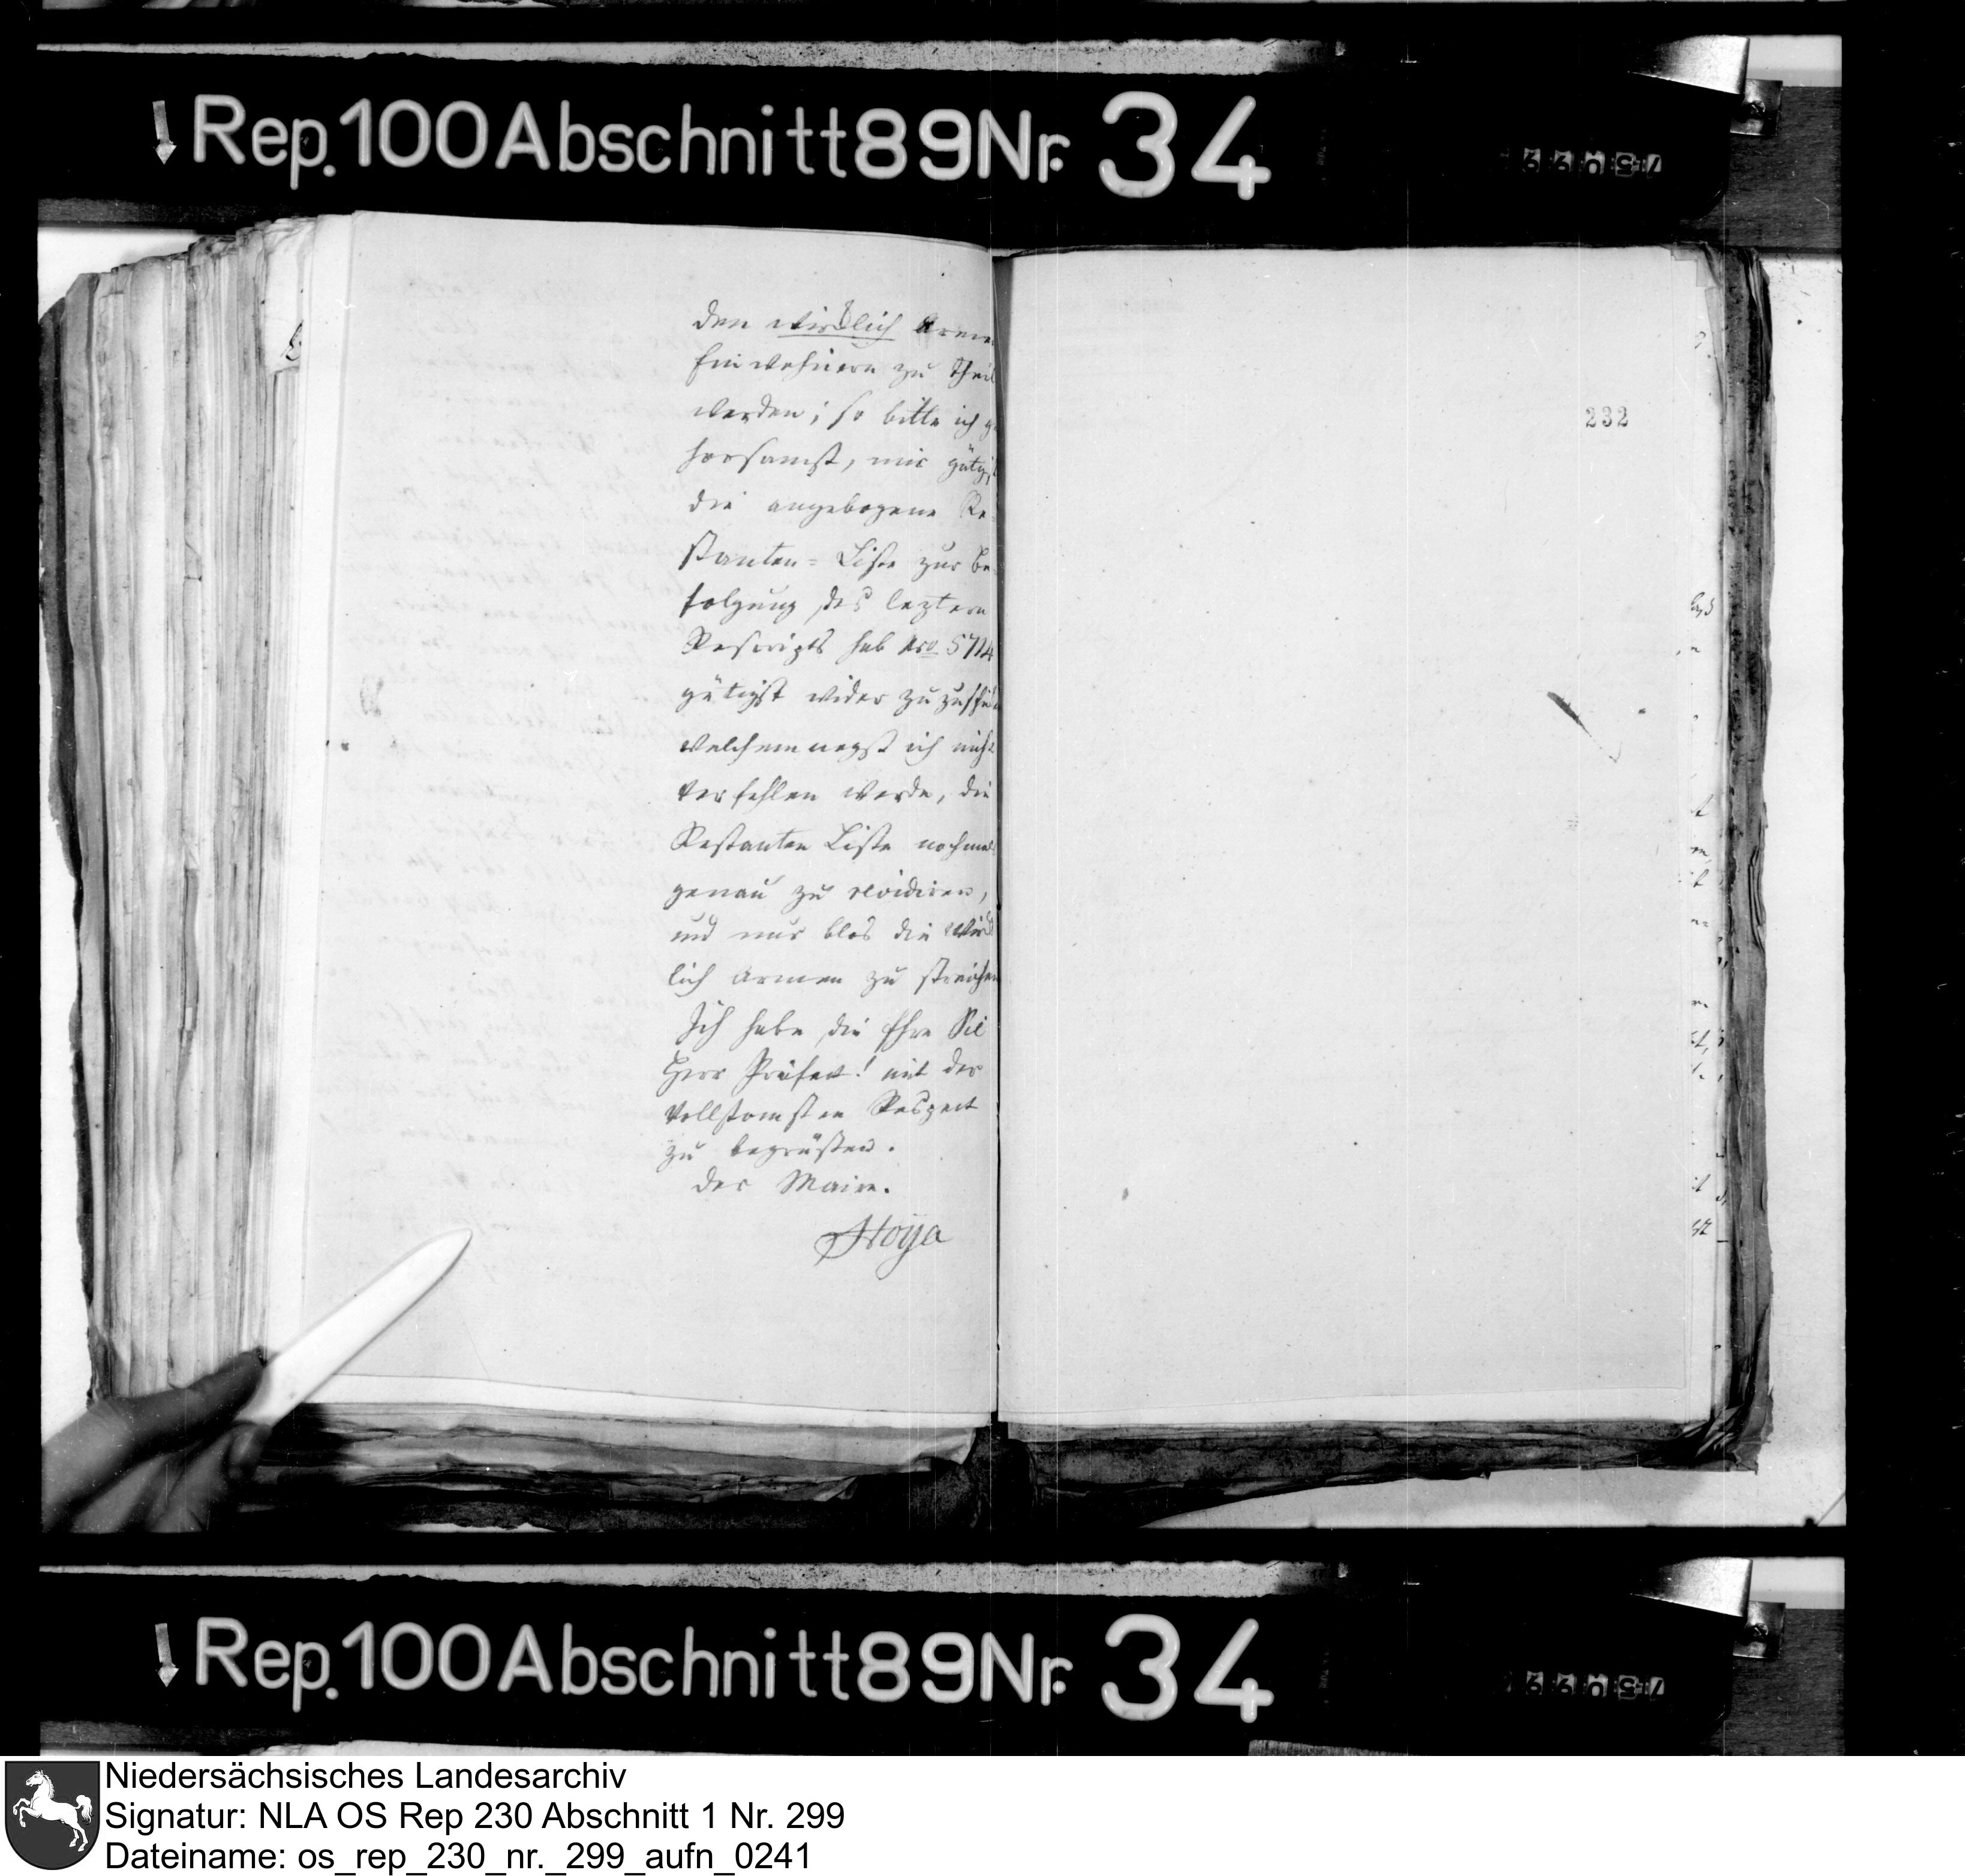 Rep.100Abschnitt89Nr. 34
den wirklich Arme
Einwohnern zu Theil
werden; so bitte ich g
horsamst, mir gütig
die angebogene Re-
stanten= Liste zur Be-
folgung des leztern
Rescripts sub Nro 5714
gütigst wider zuzuschi
welchemnegst ich nich
verfehlen werde, die
Restanten Liste nochmal
genau zu revidiren,
und nur blos die Wirk
lich Armen zu streichen
Ich habe die Ehre Sie
Herr Präfect! mit der
Respect
zu begrüßen.
der Maire.
Hoya
232
Rep.100Abschnitt89Nr. 34
Niedersächsisches Landesarchiv
Signatur: NLA OS Rep 230 Abschnitt 1 Nr. 299
Dateiname: os_rep_230_nr._299_aufn_0241